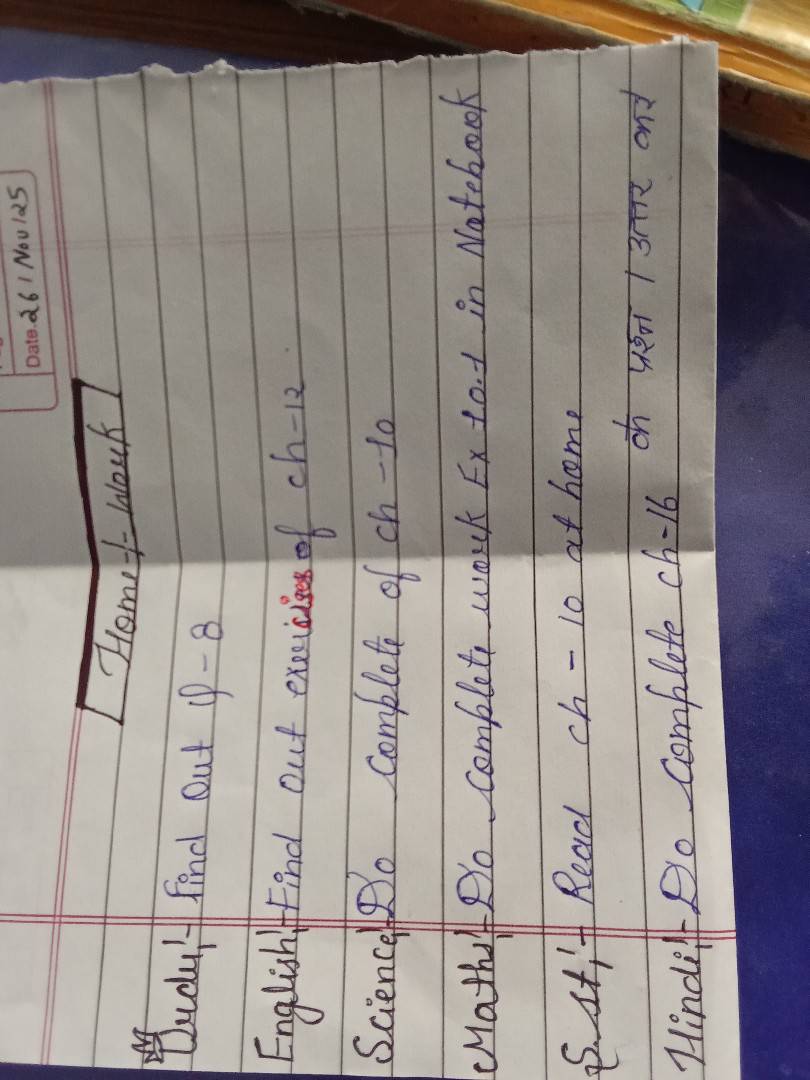 Date. 26 / Nov / 25
Home-/-Work
:- Find Out Q-8
English:- Find out exercises of ch-12
Science:- Do complete of ch-10
Maths:- Do complete work Ex 10.1 in Notebook
S.st:- Read ch-10 at home
Hindi:- Do complete ch-16 के प्रश्न / उत्तर करे